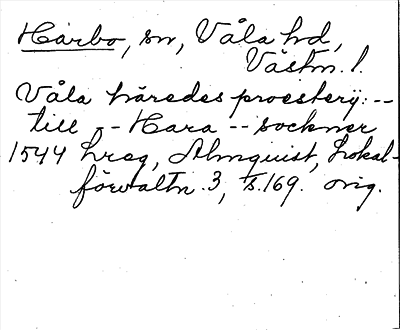 Harbo, sn, Våla hd,
Västm. l.
Våla häredes proesterij: --
till -- Hara -- sockner
1544 hreg, Almquist, Lokal-
förvaltn. 3, s. 169. orig.